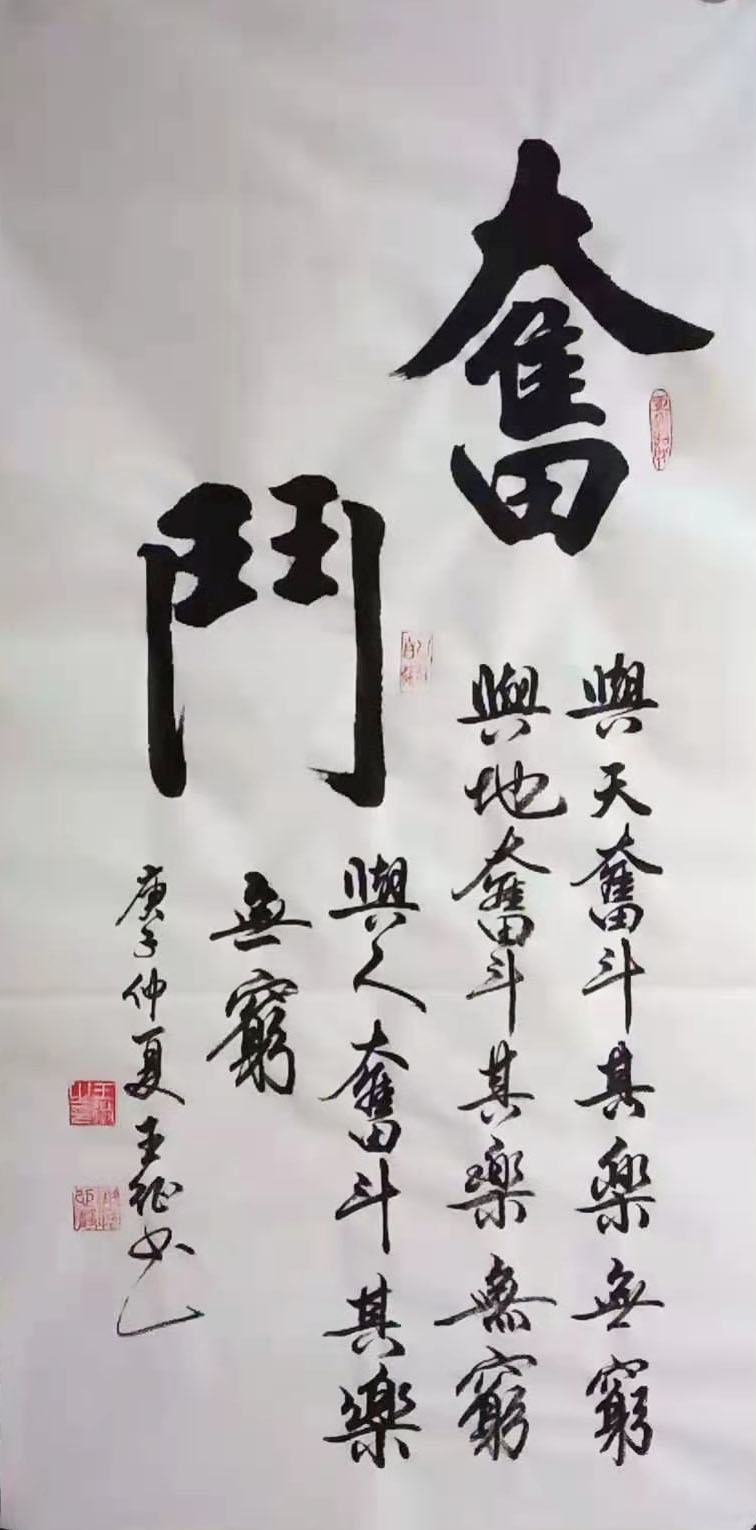 奮
鬥
與天奮斗其樂無窮
與地奮斗其樂無窮
與人奮斗其樂
無窮
庚子仲夏王征书